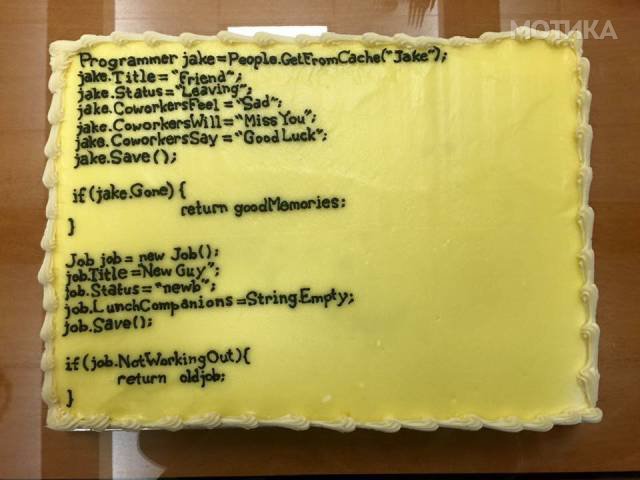 МОТИКА
Programmer jake=People.GetFromCache("Jake");
jake.Title="friend";
jake.Status="Leaving";
jake.CoworkersFeel="Sad";
jake.CoworkersWill="Miss You";
jake.CoworkersSay="Good Luck";
jake.Save();
if(jake.Gone){
return goodMemories;
}
Job job=new Job();
job.Title=New Guy";
job.Status="newb";
job.LunchCompanions=String.Empty;
job.Save();
if(job.NotWorkingOut){
return oldjob;
}